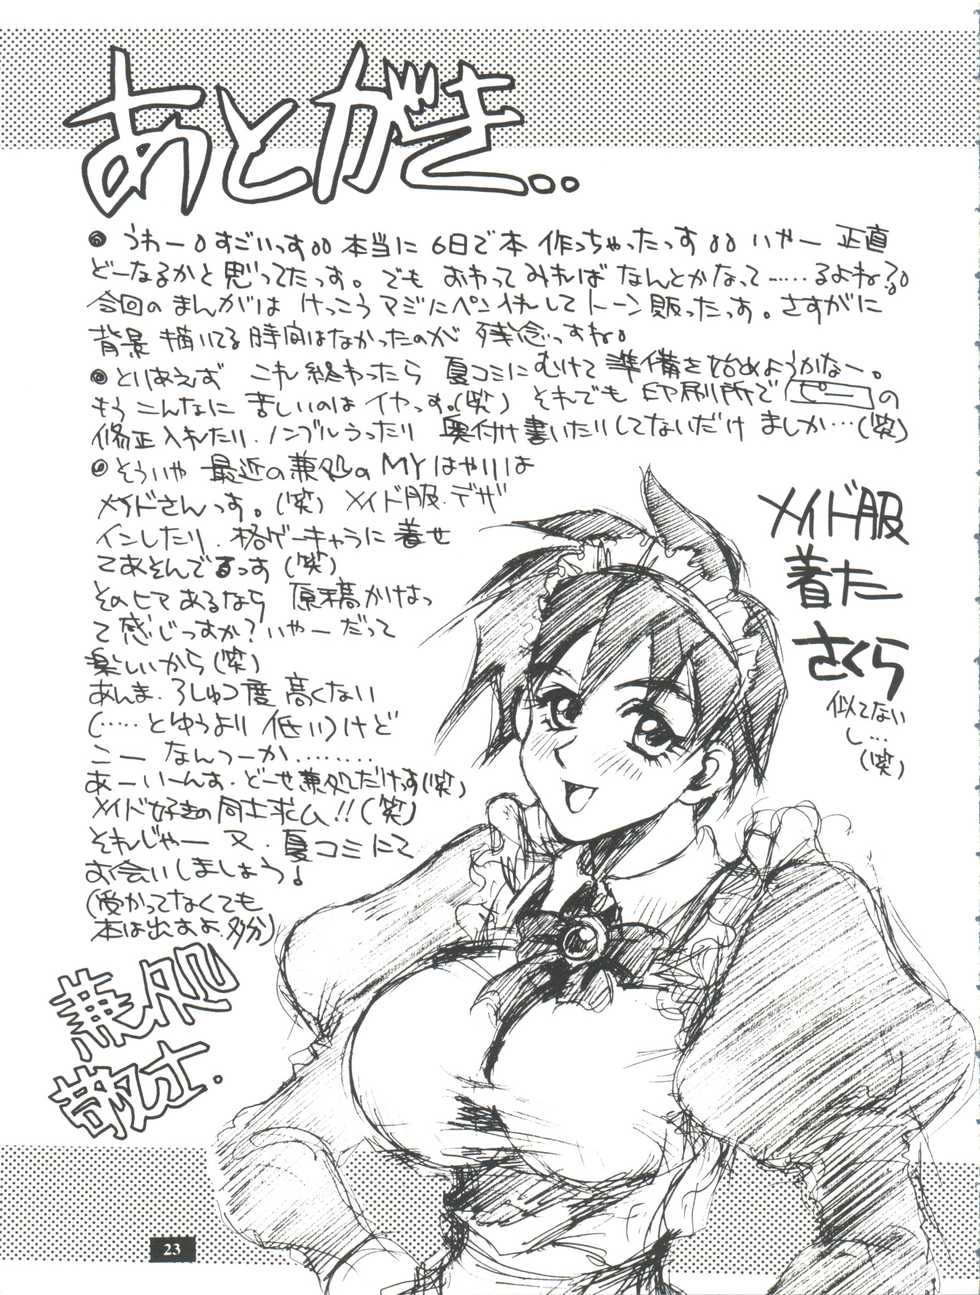 あとがき...
◎うわー。すごいっす。。本当に6日で本作っちゃったっす。。いやー正直
どーなるかと思ってたっす。でもおわってみればなんとかなって……るよね?。。
今回のまんがはけっこうマジにペン入れしてトーン貼ったっす。さすがに
背景描いてる時間はなかったのが残念っすね。
◎とりあえずこれ終わったら夏コミにむけて準備を始めようかなー。
もうこんなに苦しいのはイヤっす。(笑)それでも印刷所でピーの
修正入れたり.ノンブルうったり奥付け書いたりしてないだけましか…(笑)
◎そういや最近の兼処のMYはやりは
メイドさんっす。(笑)メイド服.デザ
インしたり.格ゲーキャラに着せ
てあそんでるっす(笑)
そのヒマあるなら原稿かけっ
て感じっすか?いやーだって
楽しいから(笑)
あんま.ろしゅつ度高くない
(……とゆうより低い)けど
こーなんつーか………
あーいーんす.どーせ兼処だけっす(笑)
メイド好きの同士求ム!!(笑)
それじゃー又.夏コミにて
お会いしましょう!
(受かってなくても
本は出すよ.多分)
兼処
敬士.
メイド服
着た
さくら
似てない
し…
(笑)
23